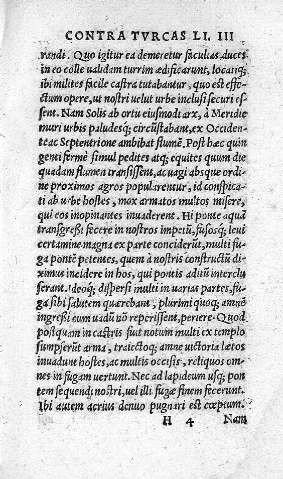 CONTRA TVRCAS LI. III
randi. Quo igitur ea demeretur facultas, duces
in eo colle validam turrim ædificarunt, locatiq;
ibi milites facile castra tutabantur, quo est effe-
ctum opere, ut nostri velut urbe inclusi securi es-
sent. Nam Solis ab ortu eiusmodi arx, à Meridie
muri urbis paludesq; circūstabant, ex Occiden-
te ac Septentrione ambibat flumē. Post hæc quin
genti fermè simul pedites atq; equites quum die
quadam flumen transissent, ac vagi absque ordi-
ne proximos agros popularentur, id conspica-
ti ab urbe hostes, mox armatos multos misere,
qui eos inopinantes invaderent. Hi ponte aquā
transgreßi fecere in nostros impetū, fusosq; levi
certamine magna ex parte conciderūt, multi fu-
ga pontē petentes, quem à nostris constructū di-
ximus incidere in hos, qui pontis aditū interclu
serant. Ideoq; dispersi multi in varias partes, fu-
ga sibi salutem quærebant, plurimi quoq; amnē
ingreßi cum vadū nō reperissent, periere. Quod
postquam in castris fuit notum multi ex templo
sumpserūt arma, traiectoq; amne victoria latos
invadunt hostes, ac multis occisis, reliquos om-
nes in fugam vertunt. Nec ad lapideum usq; pon
tem sequendi nostri, vel illi fugæ finem fecerunt.
Ibi autem acrius denuo pugnari est cœptum.
H 4 Nam